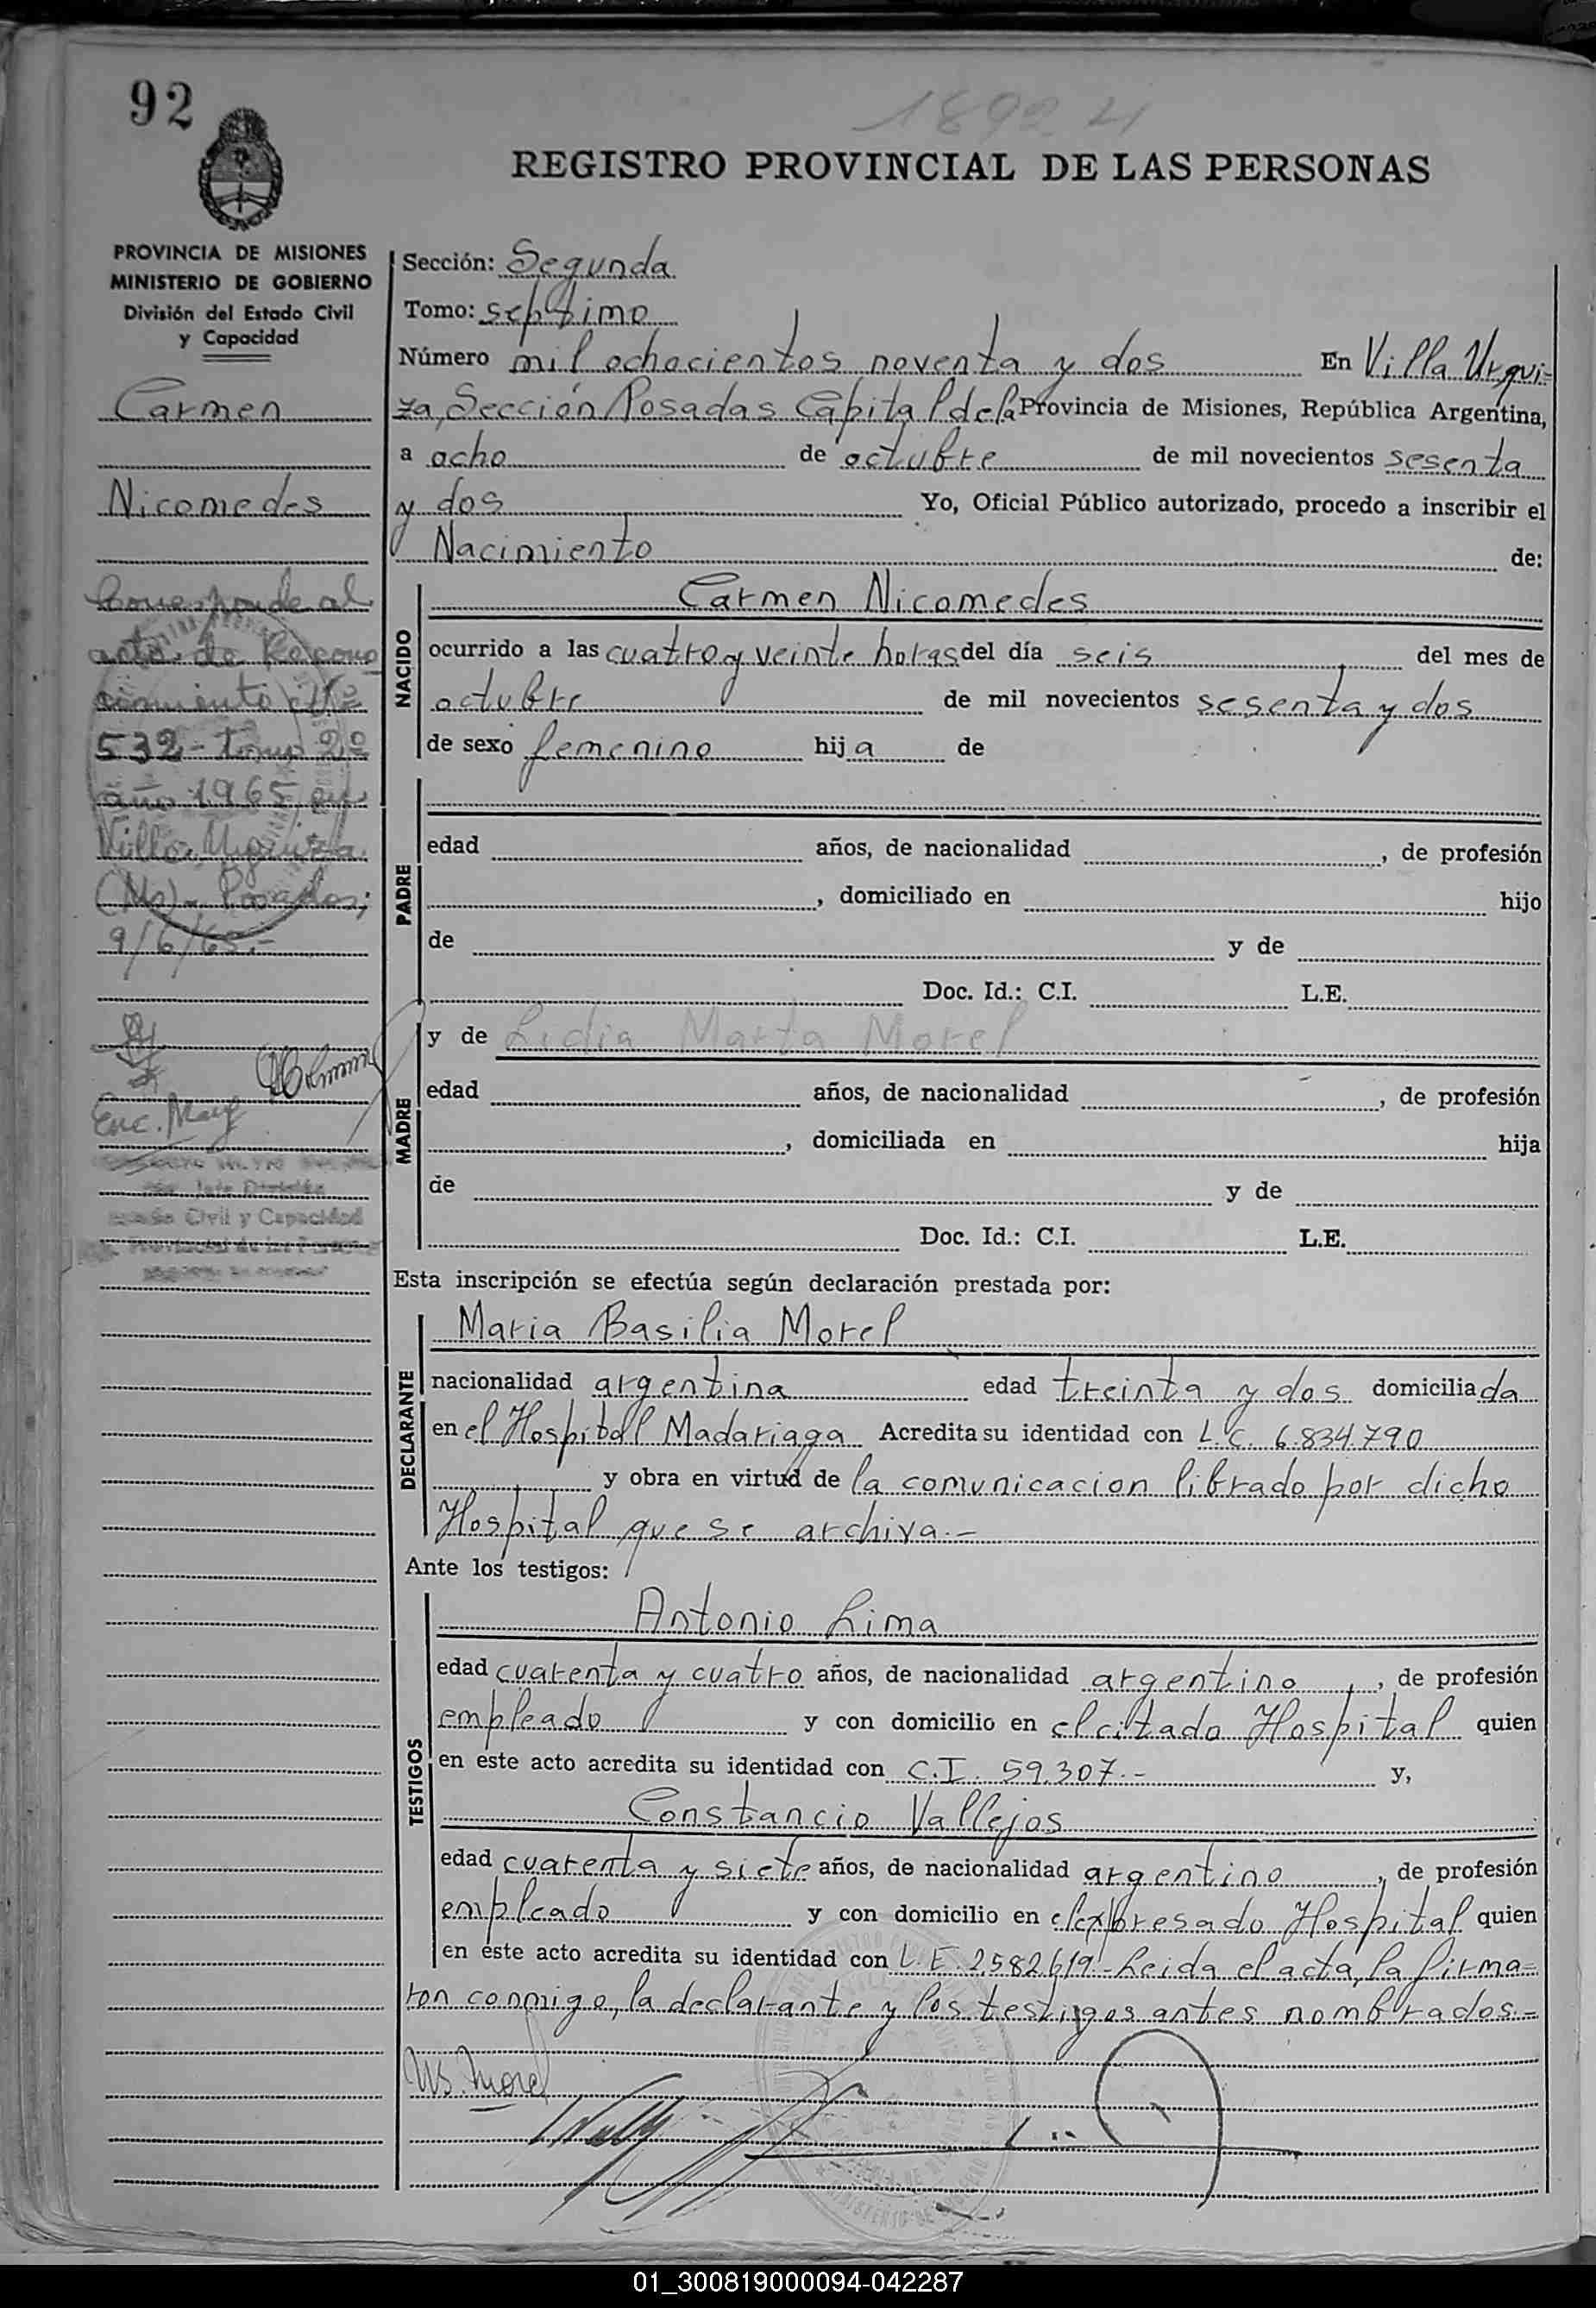 92
1892 4
REGISTRO PROVINCIAL DE LAS PERSONAS
PROVINCIA DE MISIONES
MINISTERIO DE GOBIERNO
División del Estado Civil
y Capacidad
Carmen
Nicomedes
Corresponde al
acta de Recono
cimiento Nº
532 - tomo 2º
año 1965 en
Villa Urquiza
(Ms) - Posadas,
9/6/65.-
Enc. May
Jefe División
Civil y Capacidad
Sección: Segunda
Tomo: septimo
Número mil ochocientos noventa y dos En Villa Urqui=
za, Sección Posadas Capital de la Provincia de Misiones, República Argentina,
a ocho de octubre de mil novecientos sesenta
y dos Yo, Oficial Público autorizado, procedo a inscribir el
Nacimiento de:
NACIDO
Carmen Nicomedes
ocurrido a las cuatro y veinte horas del día seis del mes de
octubre de mil novecientos sesenta y dos
de sexo femenino hija de
PADRE
edad años, de nacionalidad , de profesión
, domiciliado en hijo
de y de
Doc. Id.: C.I. L.E.
MADRE
y de Lidia Marta Morel
edad años, de nacionalidad , de profesión
, domiciliada en hija
de y de
Doc. Id.: C.I. L.E.
Esta inscripción se efectúa según declaración prestada por:
DECLARANTE
Maria Basilia Morel
nacionalidad argentina edad treinta y dos domiciliada
en el Hospital Madariaga Acredita su identidad con L.C. 6.834.790
y obra en virtud de la comunicacion librado por dicho
Hospital que se archiva.-
Ante los testigos:
TESTIGOS
Antonio Lima
edad cuarenta y cuatro años, de nacionalidad argentino , de profesión
empleado y con domicilio en el citado Hospital quien
en este acto acredita su identidad con C.I. 59.307.- y,
Constancio Vallejos
edad cuarenta y siete años, de nacionalidad argentino , de profesión
empleado y con domicilio en el expresado Hospital quien
en este acto acredita su identidad con L.E. 2.582.619.- Leida el acta, la firma=
ron conmigo, la declarante y los testigos antes nombrados.=
Morel
01_300819000094-042287